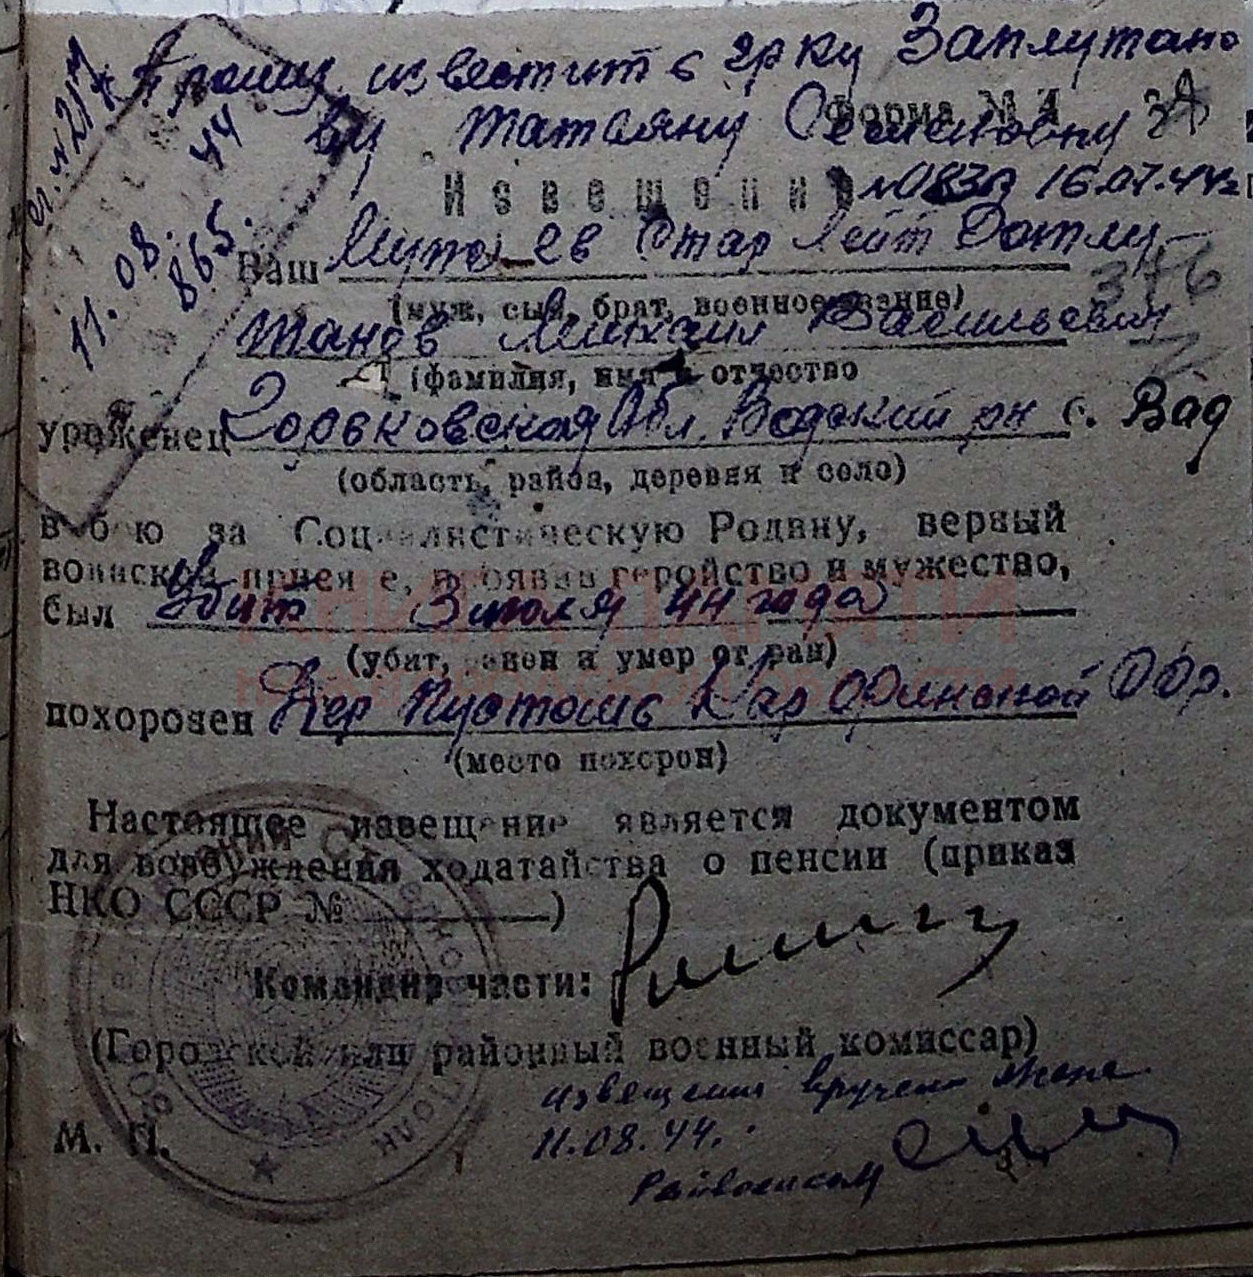 Прошу известить гр-ку Заплутано
ву Татьяну Семеновну
Форма № 4
Извещение № 0830 16.07.44г
11.08.44
865.
Ваш Муж Стар Лейт
376
(муж, сын, брат, военное звание)
танов Михаил Васильевич
(фамилия, имя и отчество
уроженец Горьковская Обл. Вадский рн с. Вад
(область, район, деревня и село)
в бою за Социалистическую Родину, верный
воинской присяге, проявив геройство и мужество,
был Убит 3 июля 44 года
(убит, ранен и умер от ран)
похоронен Дер Пустошь
(место похорон)
Настоящее извещение является документом
для возбуждения ходатайства о пенсии (приказ
НКО СССР № )
Командир части:
(Городской или районный военный комиссар)
извещения вручено жене
11.08.44.
М. П.
Райвоенком